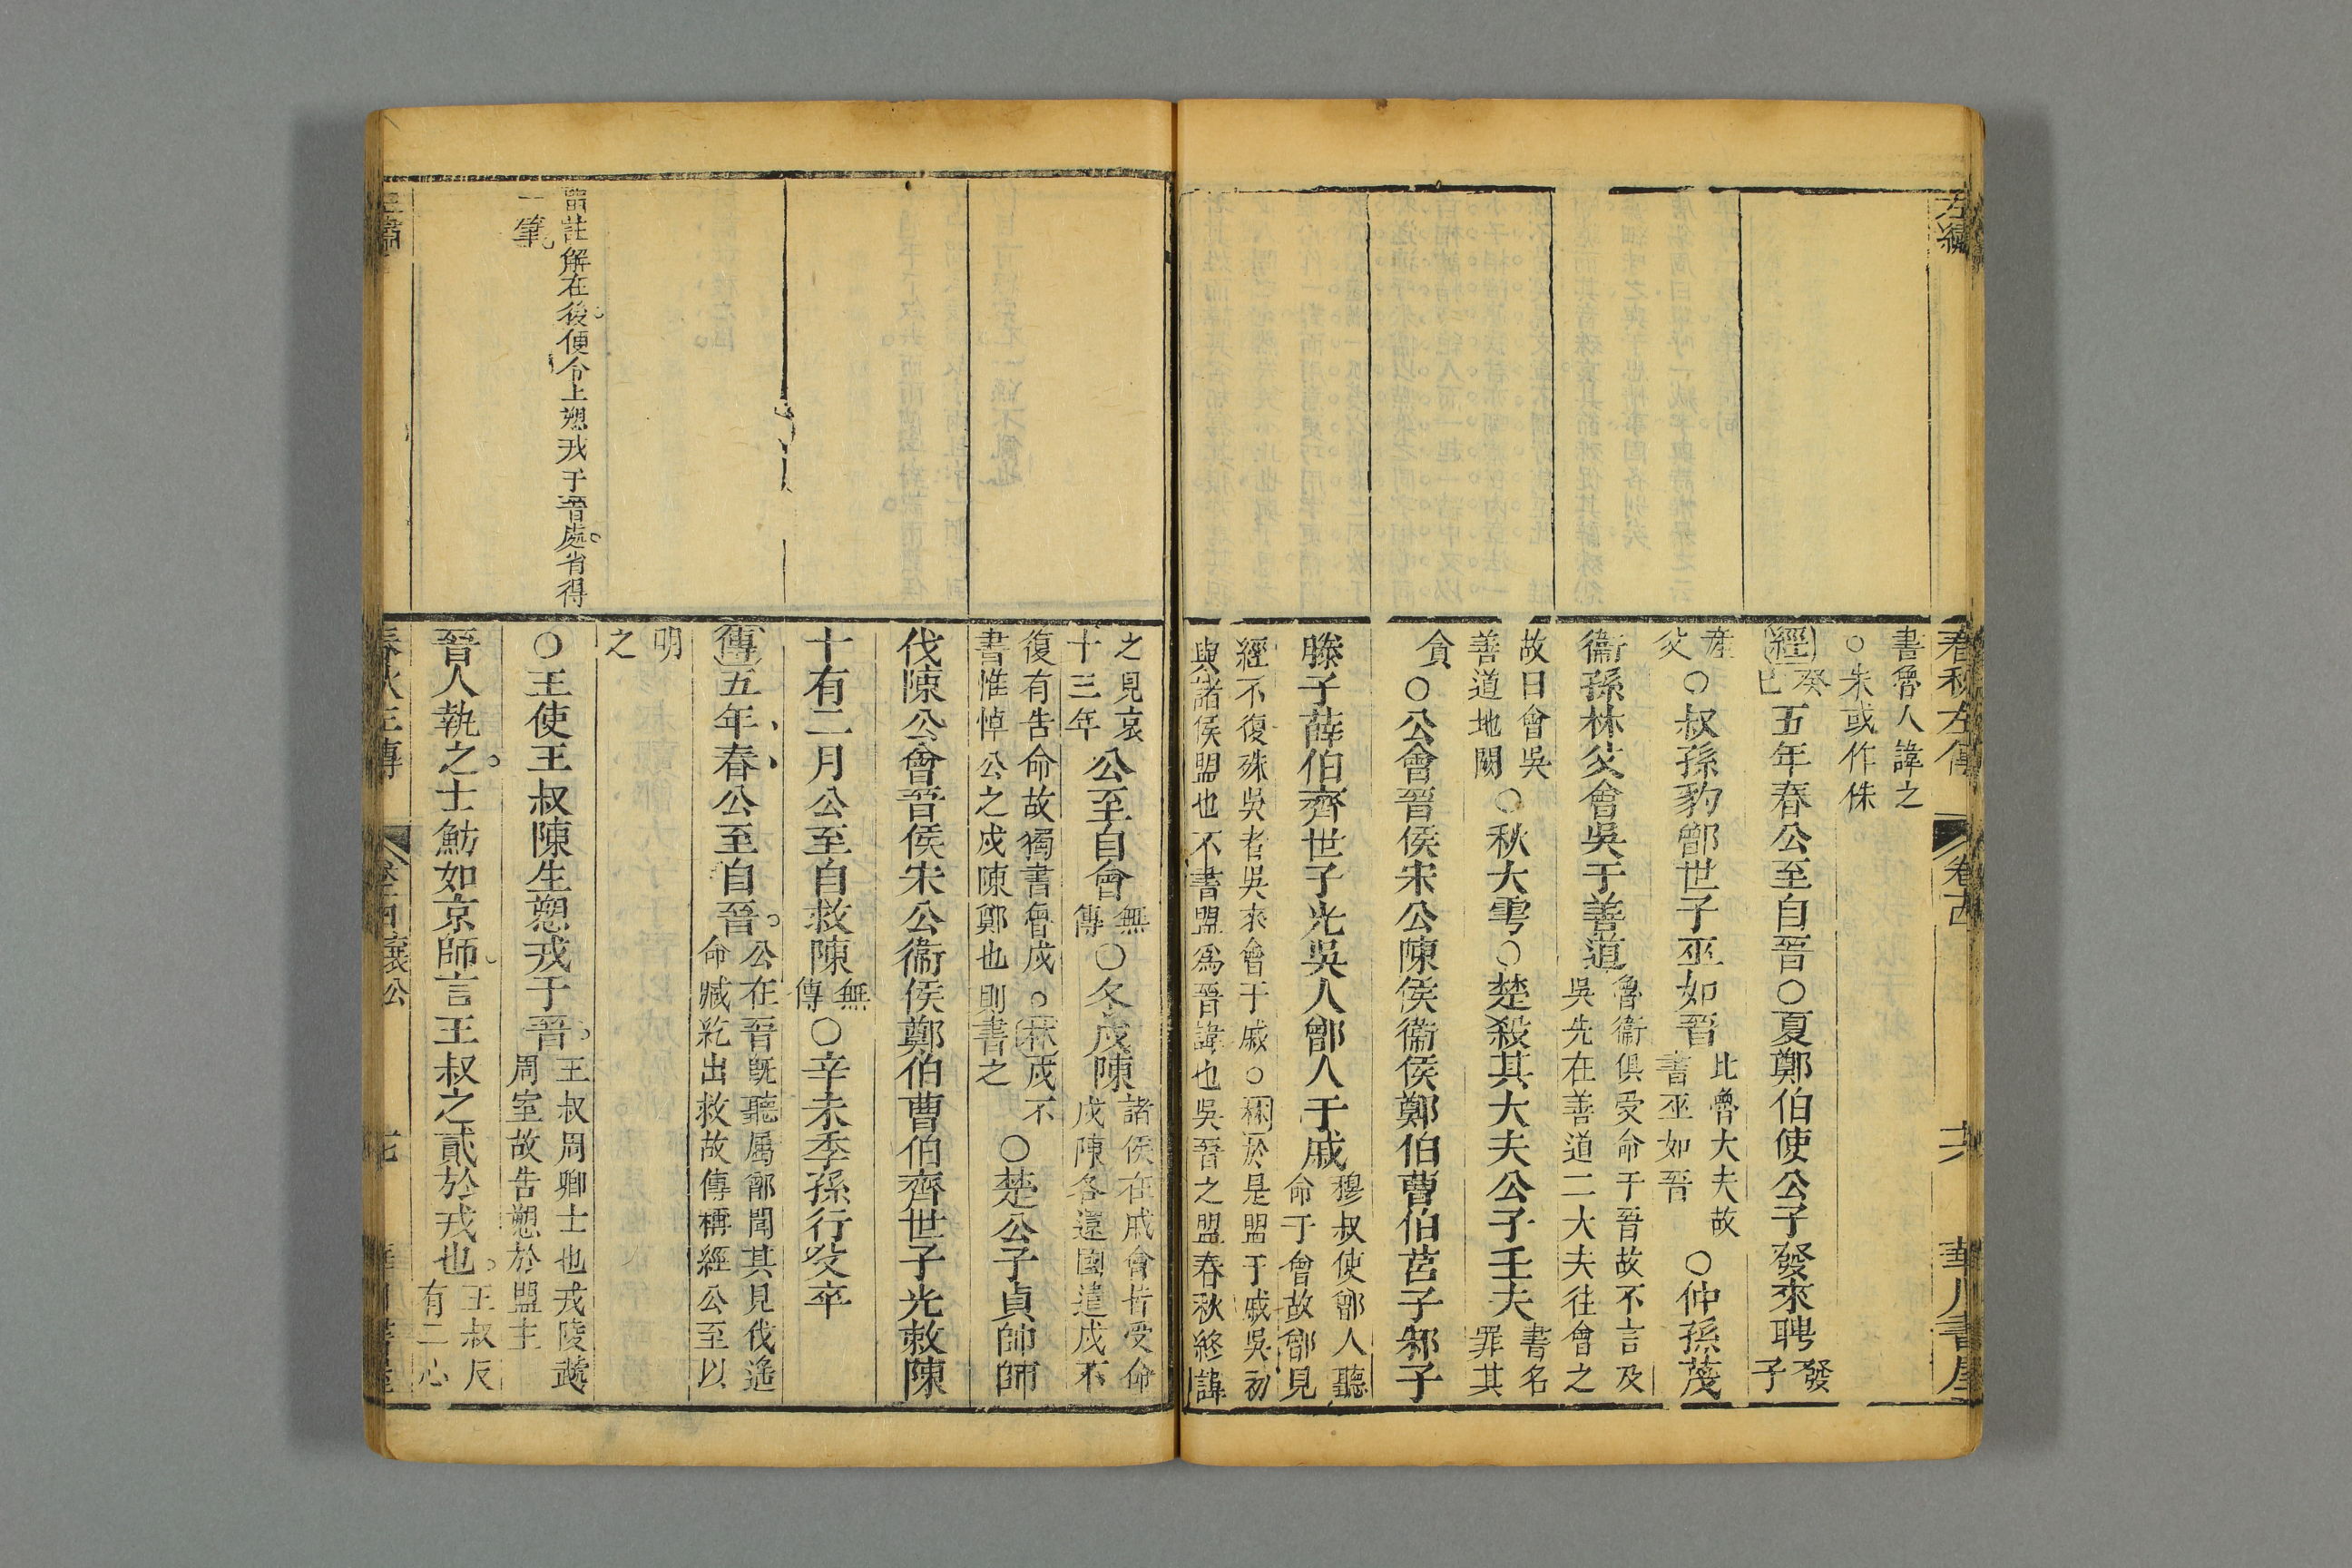 左繡
春秋左傳 卷十四 十六 華川書屋
書魯人諱之
○朱或作侏
經癸巳五年春公至自晉○夏鄭伯使公子發來聘發子
產父○叔孫豹鄫世子巫如晉比魯大夫故書巫如晉○仲孫蔑
衞孫林父會吳于善道魯衞俱受命于晉故不言及吳先在善道二大夫往會之
故曰會吳善道地闕○秋大雩○楚殺其大夫公子壬夫書名罪其
貪○公會晉侯宋公陳侯衞侯鄭伯曹伯莒子邾子
滕子薛伯齊世子光吳人鄫人于戚穆叔使鄫人聽命于會故鄫見
經不復殊吳者吳來會于戚○林於是盟于戚吳初
與諸侯盟也不書盟爲晉諱也吳晉之盟春秋終諱
之見哀十三年公至自會無傳○冬戍陳諸侯在戚會皆受命戍陳各還國遣戍不
復有告命故獨書魯戍○林戍不書惟悼公之戍陳鄭也則書之○楚公子貞帥師
伐陳公會晉侯宋公衞侯鄭伯曹伯齊世子光救陳
十有二月公至自救陳無傳○辛未季孫行父卒
傳五年春公至自晉公在晉旣聽屬鄫聞其見伐遙命臧紇出救故傳稱經公至以
明之
○王使王叔陳生愬戎于晉王叔周卿士也戎陵虣周室故告愬於盟主
晉人執之士魴如京師言王叔之貳於戎也王叔反有二心
註解在後便令上愬戎于晉處省得
一筆
春秋左傳 襄公